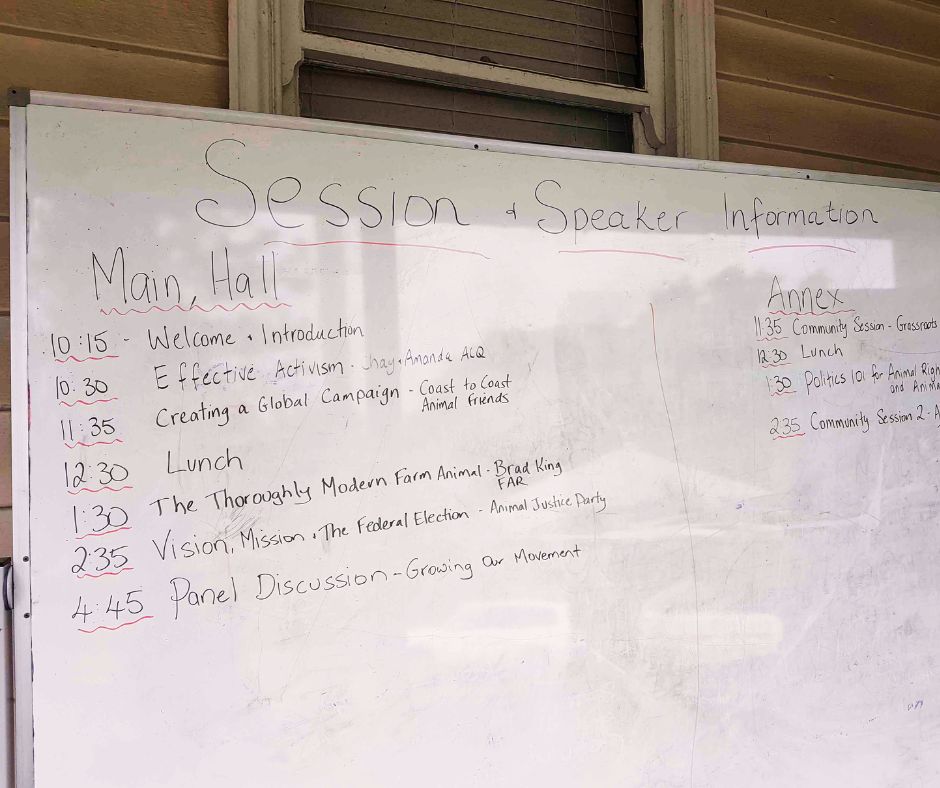 Session + Speaker Information
Main, Hall
10:15 - Welcome + Introduction
10:30 Effective Activism - Jhay + Amanda ALQ
11:35 Creating a Global Campaign - Coast to Coast
Animal Friends
12:30 Lunch
1:30 The Thoroughly Modern Farm Animal - Brad King
FAR
2:35 Vision, Mission + The Federal Election - Animal Justice Party
4:45 Panel Discussion - Growing Our Movement
Annex
11:35 Community Session - Grassroots
12:30 Lunch
1:30 Politics 101 for Animal Righ
and Anima
2:35 Community Session 2 - A